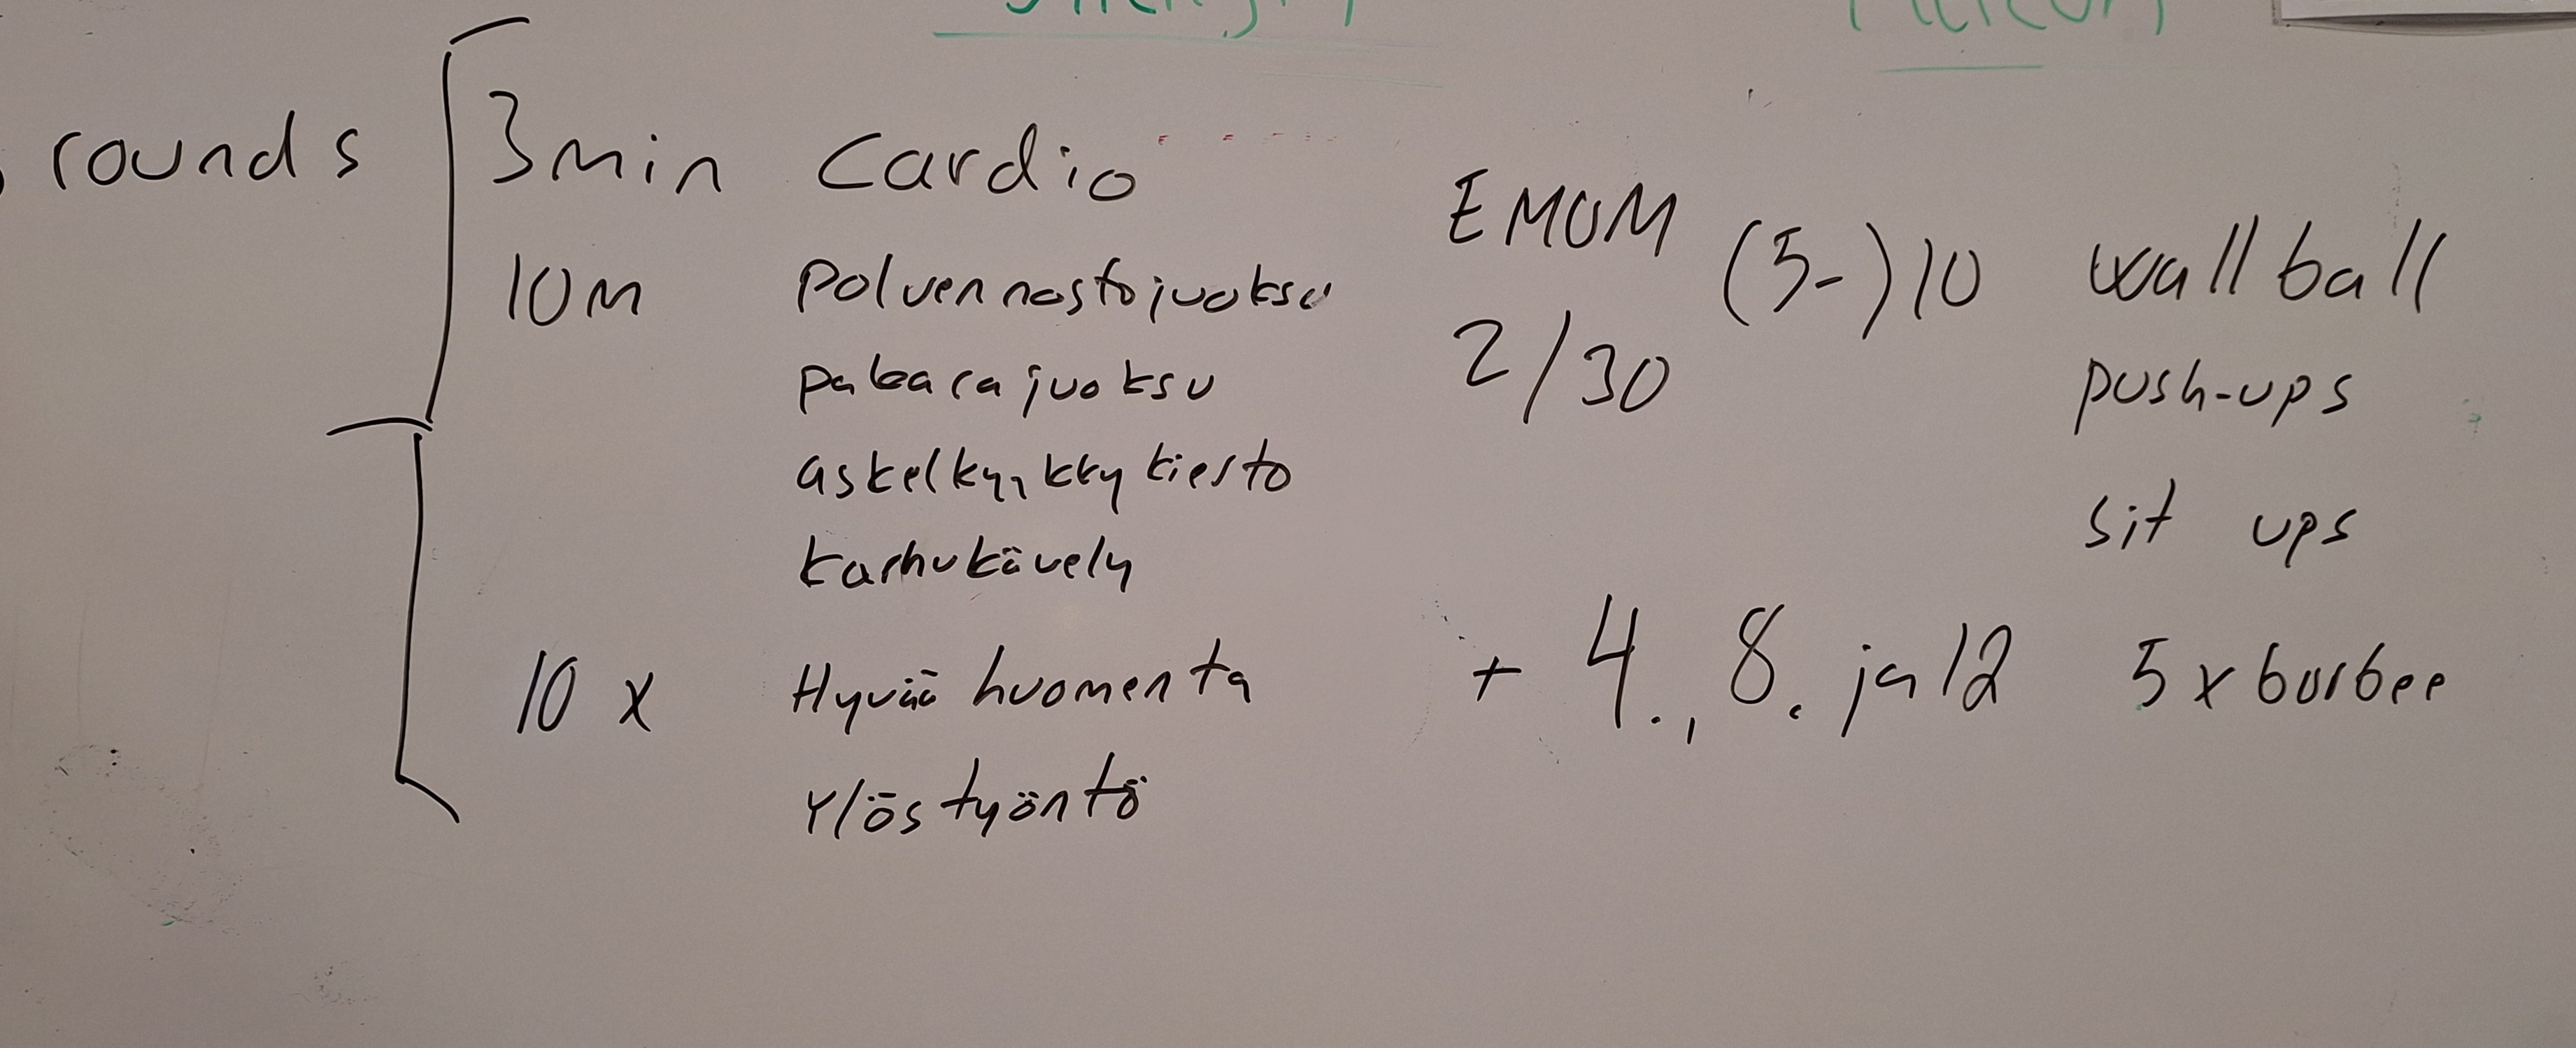 rounds
3min cardio
10m polvennostojuoksu
pakarajuoksu
askelkyykkykierto
karhukävely
10 x Hyvää huomenta
Ylöstyöntö
EMOM (5-)10 wallball
2/30 push-ups
sit ups
+ 4., 8. ja 12 5 x burbee